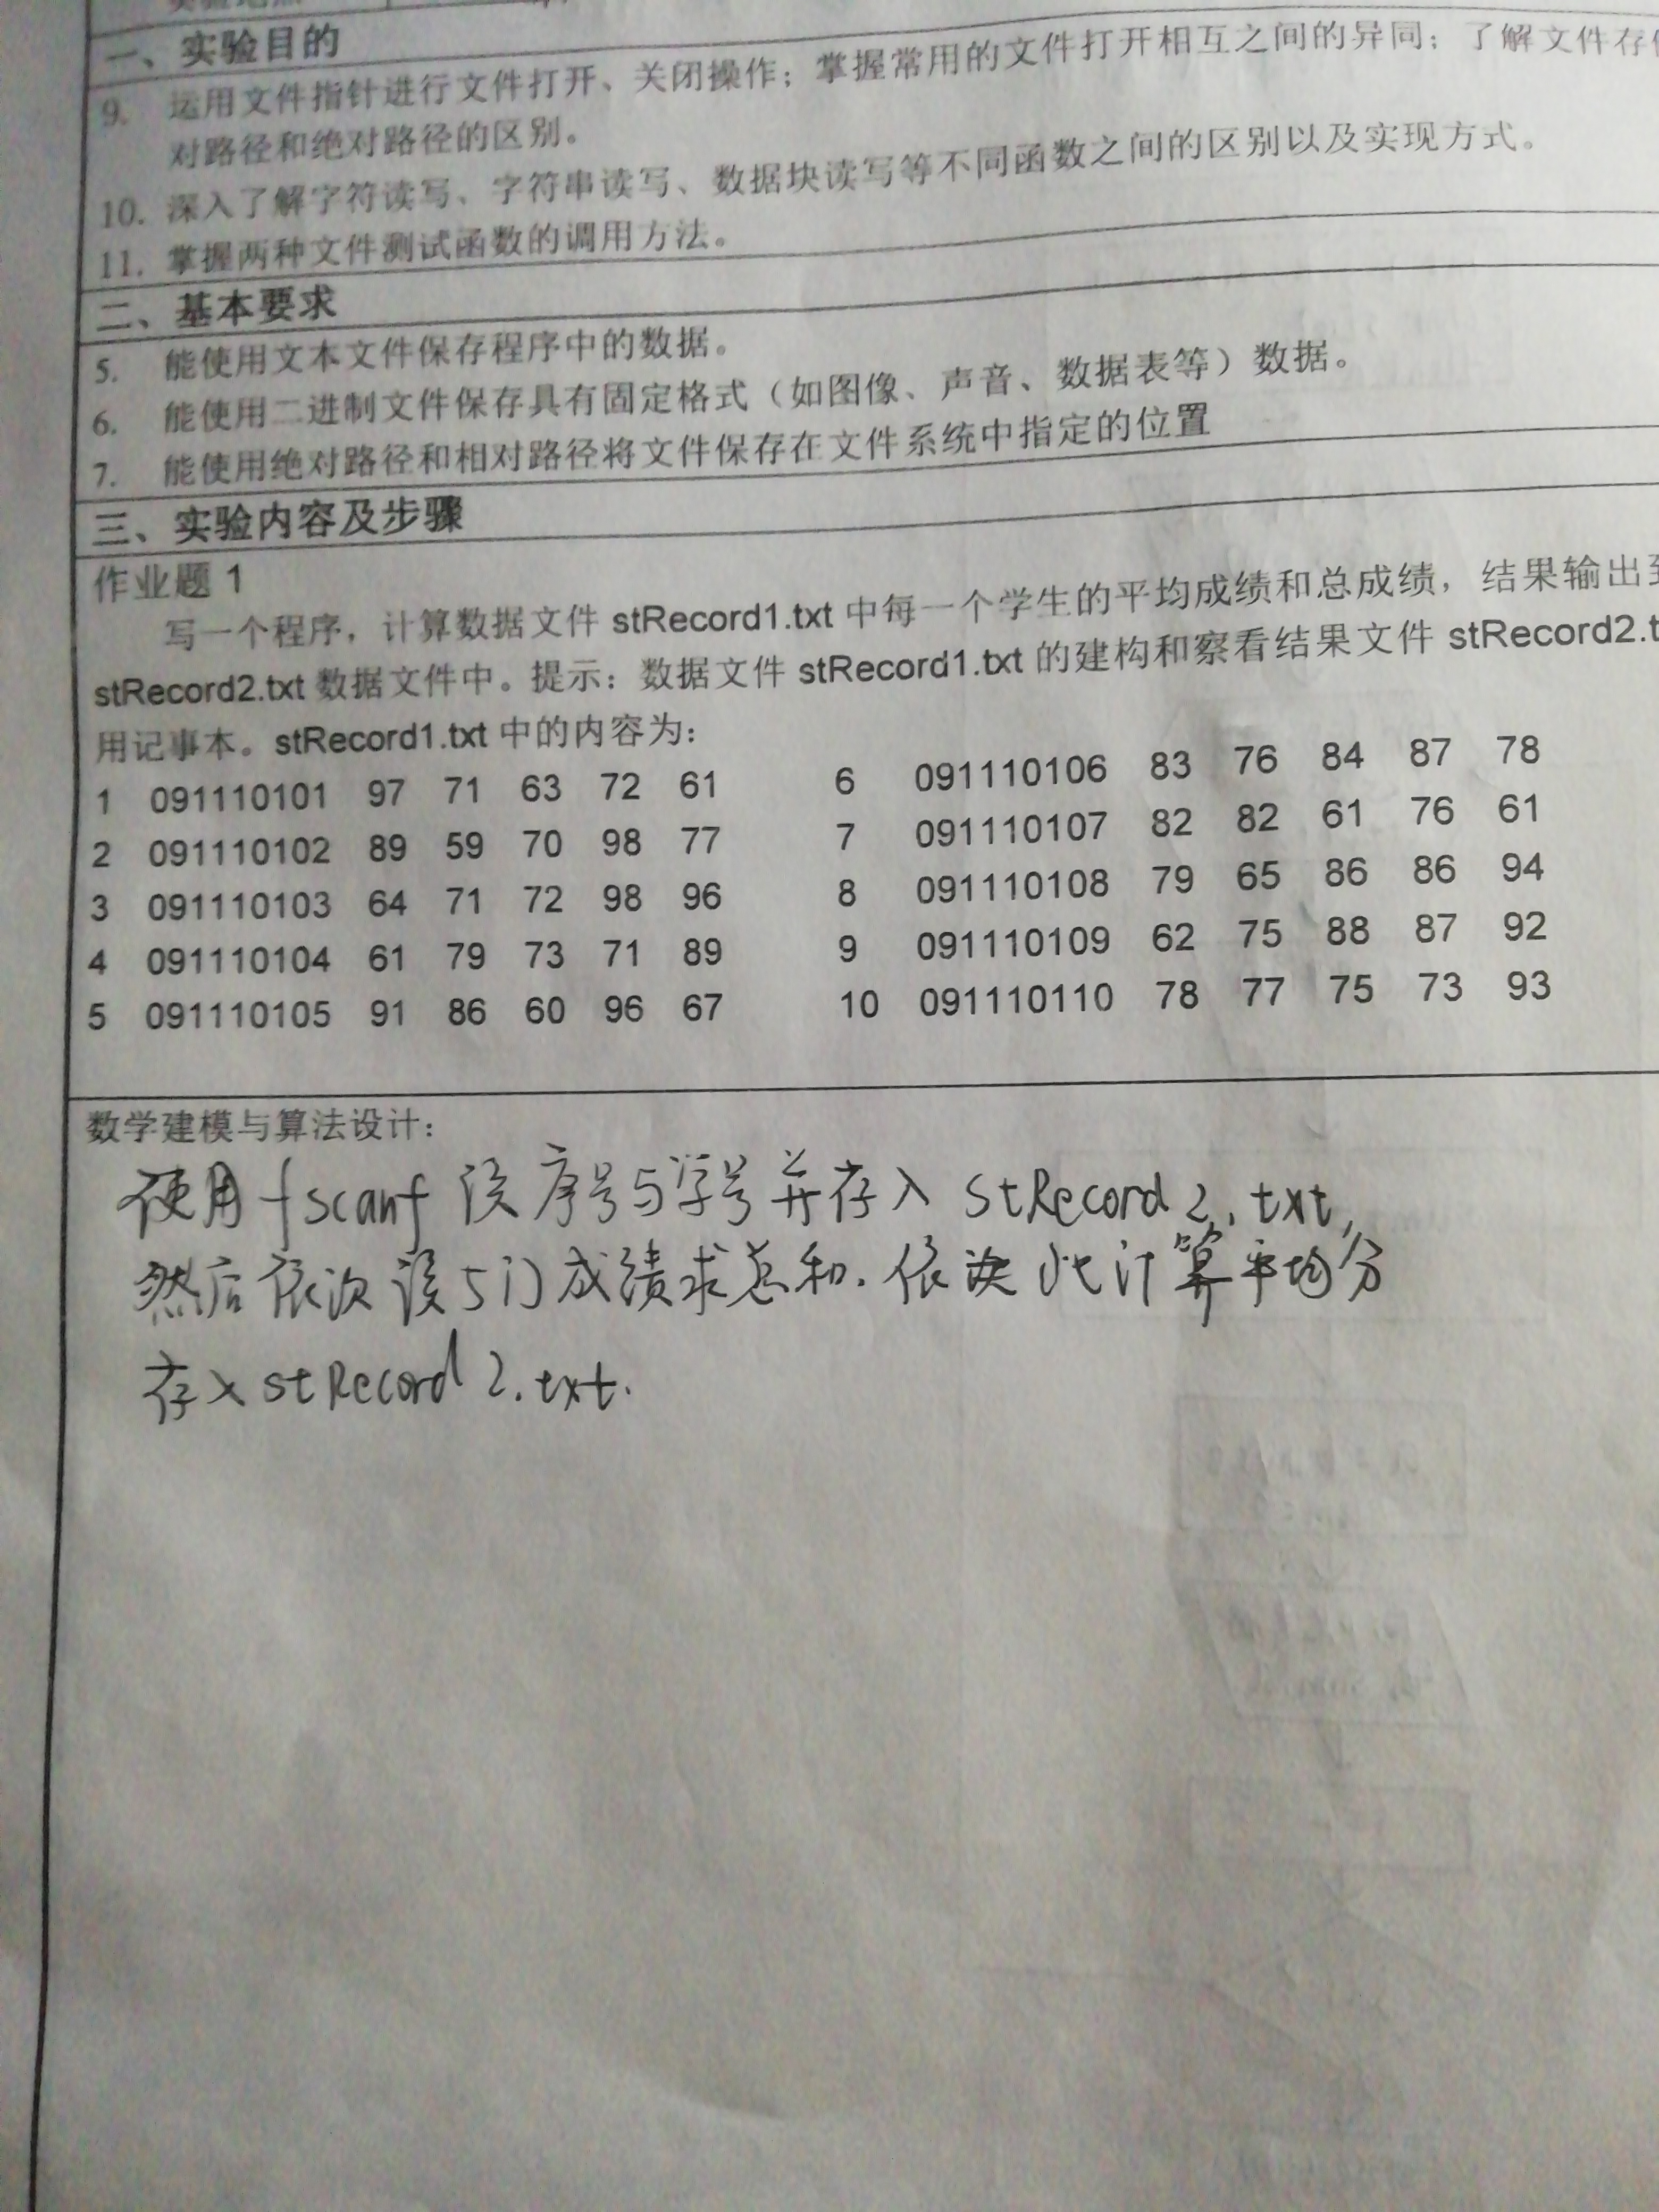 一、实验目的
9. 运用文件指针进行文件打开、关闭操作；掌握常用的文件打开相互之间的异同；了解文件存
对路径和绝对路径的区别。
10. 深入了解字符读写、字符串读写、数据块读写等不同函数之间的区别以及实现方式。
11. 掌握两种文件测试函数的调用方法。
二、基本要求
5. 能使用文本文件保存程序中的数据。
6. 能使用二进制文件保存具有固定格式（如图像、声音、数据表等）数据。
7. 能使用绝对路径和相对路径将文件保存在文件系统中指定的位置
三、实验内容及步骤
作业题 1
写一个程序，计算数据文件 stRecord1.txt 中每一个学生的平均成绩和总成绩，结果输出到
stRecord2.txt 数据文件中。提示：数据文件 stRecord1.txt 的建构和察看结果文件 stRecord2.t
用记事本。stRecord1.txt 中的内容为：
1 091110101 97 71 63 72 61
2 091110102 89 59 70 98 77
3 091110103 64 71 72 98 96
4 091110104 61 79 73 71 89
5 091110105 91 86 60 96 67
6 091110106 83 76 84 87 78
7 091110107 82 82 61 76 61
8 091110108 79 65 86 86 94
9 091110109 62 75 88 87 92
10 091110110 78 77 75 73 93
数学建模与算法设计：
使用 fscanf 读序号与学号并存入 stRecord2.txt,
然后依次读5门成绩求总和.依此计算平均分
存入 stRecord2.txt.